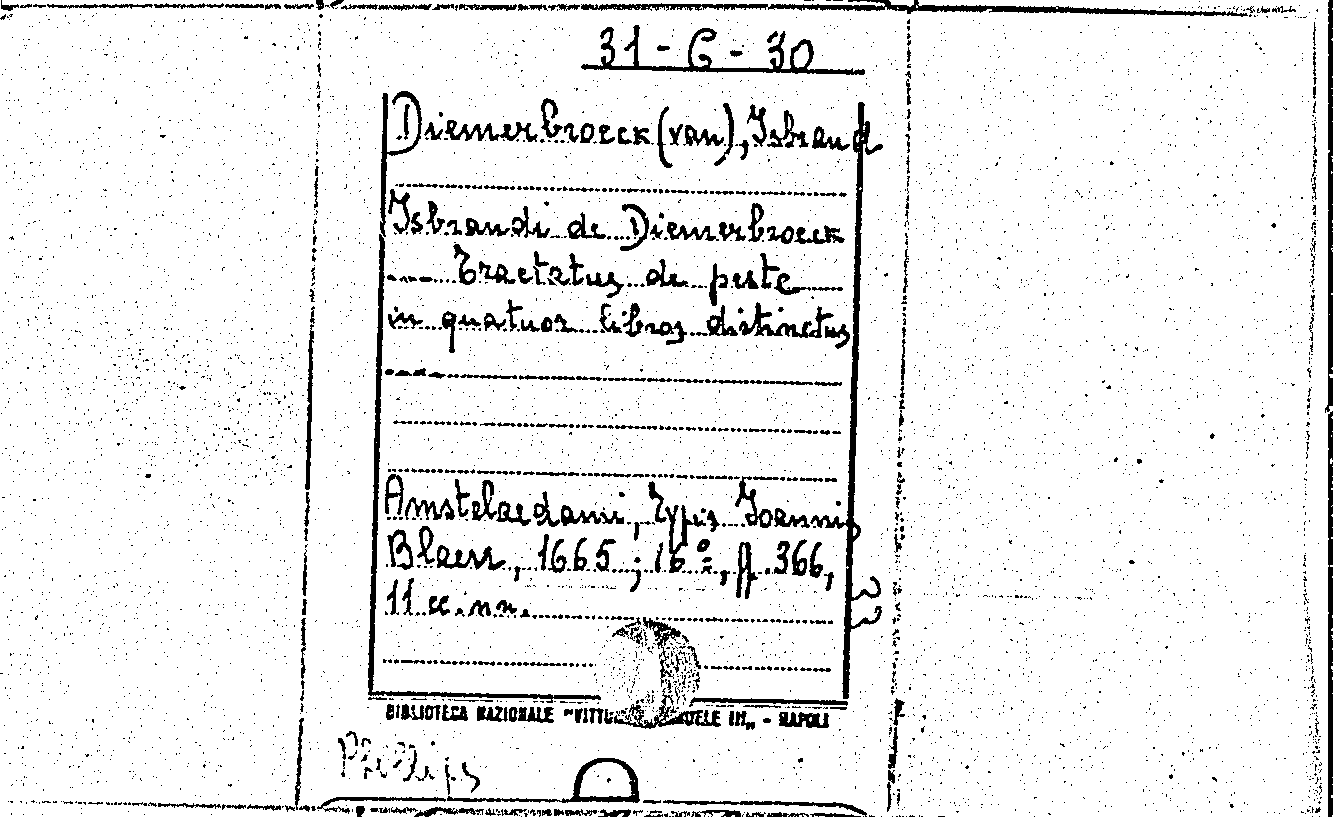 31-C-30
Diemerbroeck (van), Isbrand
Isbrandi de Diemerbroeck
---- Tractatus de peste
in quatuor libros distinctus
----
Amstelaedami, Typis Joannis
Blaeu, 1665; 16º, pp. 366,
11 cc. nn.
BIBLIOTECA NAZIONALE "VITTO ELE III„ - NAPOLI
Phillips